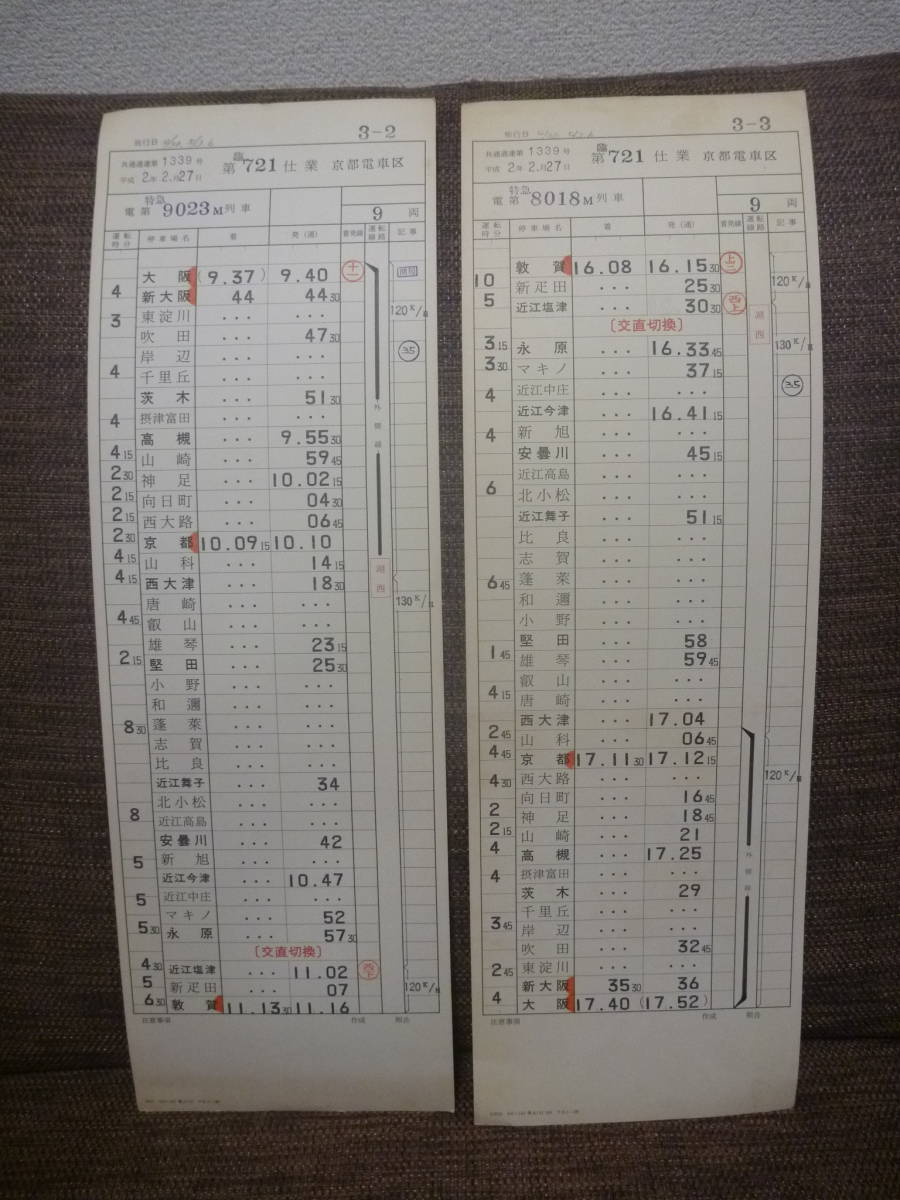 3-2
施行日
共通過達第1339号
平成2年2月27日
臨
第721仕業 京都電車区
特急
電第9023M列車
9両
運転時分 停車場名 着 発(通) 着発線 運転線路 記事
大阪 (9.37) 9.40 十一
4 新大阪 44 44 30
120K/
東淀川 ... ...
3 吹田 ... 47 30
岸辺 ... ...
35
4 千里丘 ... ...
茨木 ... 51 30
摂津富田 ... ...
外側線
4 高槻 ... 9.55 30
4 15 山崎 ... 59 45
2 30 神足 ... 10.02 15
2 15 向日町 ... 04 30
2 15 西大路 ... 06 45
2 30 京都 10.09 15 10.10
4 15 山科 ... 14 15
湖西
4 15 西大津 ... 18 30
130K/
唐崎 ... ...
4 45 叡山 ... ...
雄琴 ... 23 15
2 15 堅田 ... 25 30
小野 ... ...
和邇 ... ...
8 30 蓬莱 ... ...
志賀 ... ...
比良 ... ...
近江舞子 ... 34
北小松 ... ...
8 近江高島 ... ...
安曇川 ... 42
5 新旭 ... ...
近江今津 ... 10.47
5 近江中庄 ... ...
マキノ ... 52
5 30 永原 ... 57 30
〔交直切換〕
4 30 近江塩津 ... 11.02 西下
5 新疋田 ... 07
120K/
6 30 敦賀 11.13 30 11.16
注意事項 作成 照合
3-3
施行日
共通過達第1339号
平成2年2月27日
臨
第721仕業 京都電車区
特急
電第8018M列車
9両
運転時分 停車場名 着 発(通) 着発線 運転線路 記事
敦賀 16.08 16.15 30 上三
10 新疋田 ... 25 30
120K/
5 近江塩津 ... 30 30 西上
湖西
〔交直切換〕
3 15 永原 ... 16.33 45
130K/
3 30 マキノ ... 37 15
35
4 近江中庄 ... ...
近江今津 ... 16.41 15
4 新旭 ... ...
安曇川 ... 45 15
近江高島 ... ...
6 北小松 ... ...
近江舞子 ... 51 15
比良 ... ...
志賀 ... ...
6 45 蓬莱 ... ...
和邇 ... ...
小野 ... ...
堅田 ... 58
1 45 雄琴 ... 59 45
叡山 ... ...
4 15 唐崎 ... ...
西大津 ... 17.04
2 45 山科 ... 06 45
4 45 京都 17.11 30 17.12 15
120K/
4 30 西大路 ... ...
向日町 ... 16 45
2 神足 ... 18 45
2 15 山崎 ... 21
4 高槻 ... 17.25
外側線
4 摂津富田 ... ...
茨木 ... 29
千里丘 ... ...
3 45 岸辺 ... ...
吹田 ... 32 45
2 45 東淀川 ... ...
新大阪 35 30 36
4 大阪 17.40 (17.52)
注意事項 作成 照合